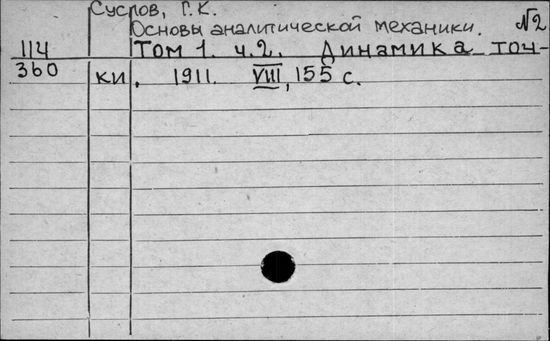 Суслов, Г. К.
Основы аналитической механики. №2
114 Том 1. ч.2. Динамика точ-
360 ки. 1911. VIII, 155 с.